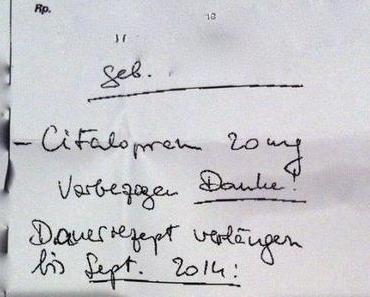 Rp.
geb.
- Citalopram 20mg
Vorbezogen Danke!
Dauerrezept verlängern
bis Sept. 2014: